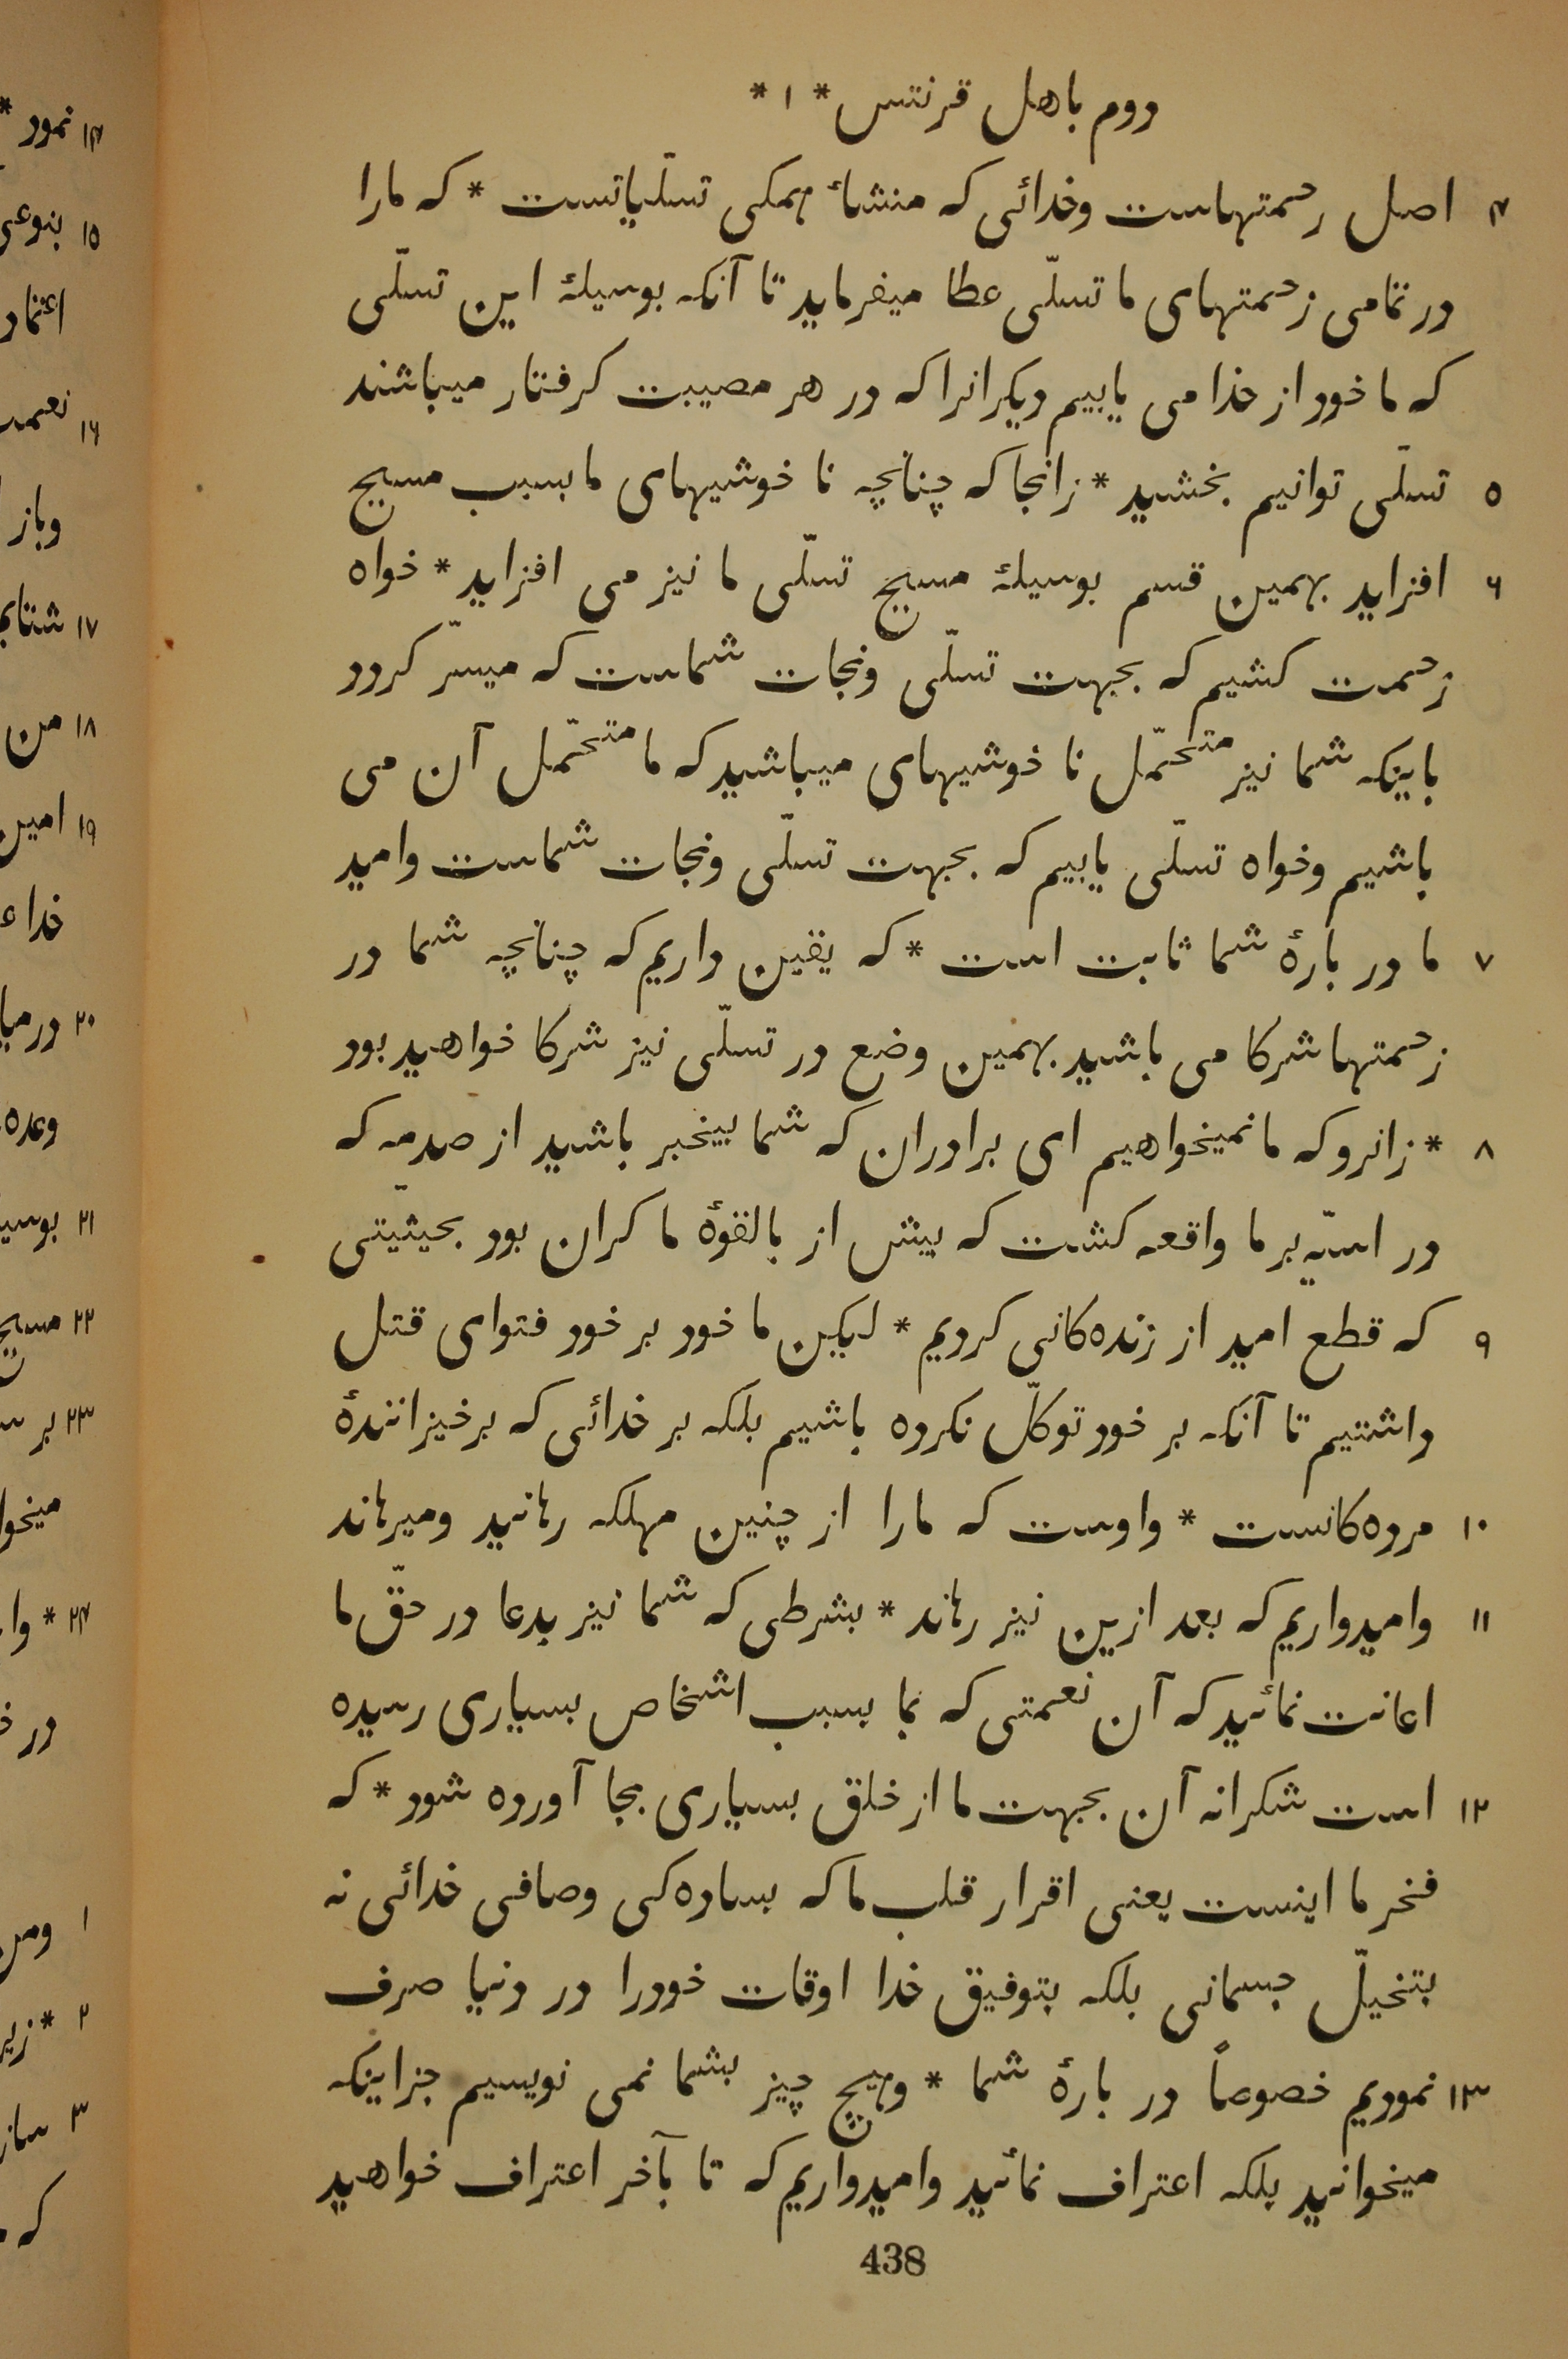 دوم باهل قرنتس * ۱ *
۴ اصل رحمتهاست وخدائی که منشاء همکی تسلّیاتست * که مارا
در تمامی زحمتهای ما تسلّی عطا میفرماید تا آنکه بوسیلهٔ این تسلّی
که ما خود از خدا می یابیم دیکرانرا که در هر مصیبت کرفتار میباشند
۵ تسلّی توانیم بخشید * زانجا که چنانچه نا خوشیهای ما بسبب مسیح
۶ افزاید بهمین قسم بوسیلهٔ مسیح تسلّی ما نیز می افزاید * خواه
زحمت کشیم که بجهت تسلّی ونجات شماست که میسّر کردد
باینکه شما نیز متحمّل نا خوشیهای میباشید که ما متحمّل آن می
باشیم وخواه تسلّی یابیم که بجهت تسلّی ونجات شماست وامید
۷ ما در بارهٔ شما ثابت است * که یقین داریم که چنانچه شما در
زحمتها شرکا می باشید بهمین وضع در تسلّی نیز شرکا خواهید بود
۸ * زانرو که ما نمیخواهیم ای برادران که شما بیخبر باشید از صدمه که
در اسّیه بر ما واقعه کشت که بیش از بالقوهٔ ما کران بود بحیثیّتی
۹ که قطع امید از زنده‌کانی کردیم * لیکن ما خود بر خود فتوای قتل
داشتیم تا آنکه بر خود توکّل نکرده باشیم بلکه بر خدائی که برخیزانندهٔ
۱۰ مرده‌کانست * واوست که مارا از چنین مهلکه رهانید ومیرهاند
۱۱ وامیدواریم که بعد ازین نیز رهاند * بشرطی که شما نیز بدعا در حقّ ما
اعانت نمائید که آن نعمتی که بما بسبب اشخاص بسیاری رسیده
۱۲ است شکرانه آن بجهت ما از خلق بسیاری بجا آورده شود * که
فخر ما اینست یعنی اقرار قلب ما که بساده‌کی وصافی خدائی نه
بتخیّل جسمانی بلکه بتوفیق خدا اوقات خودرا در دنیا صرف
۱۳ نمودیم خصوصاً در بارهٔ شما * وهیچ چیز بشما نمی نویسیم جز اینکه
میخوانید بلکه اعتراف نمائید وامیدواریم که تا بآخر اعتراف خواهید
438
۱۴ نمود *
۱۵
۱۶
وباز
۱۷
۱۸ من
۱۹ امین
۲۰
وعده
۲۱
۲۲ مسیح
۲۳
۲۴ *
۱
۲ *
۳